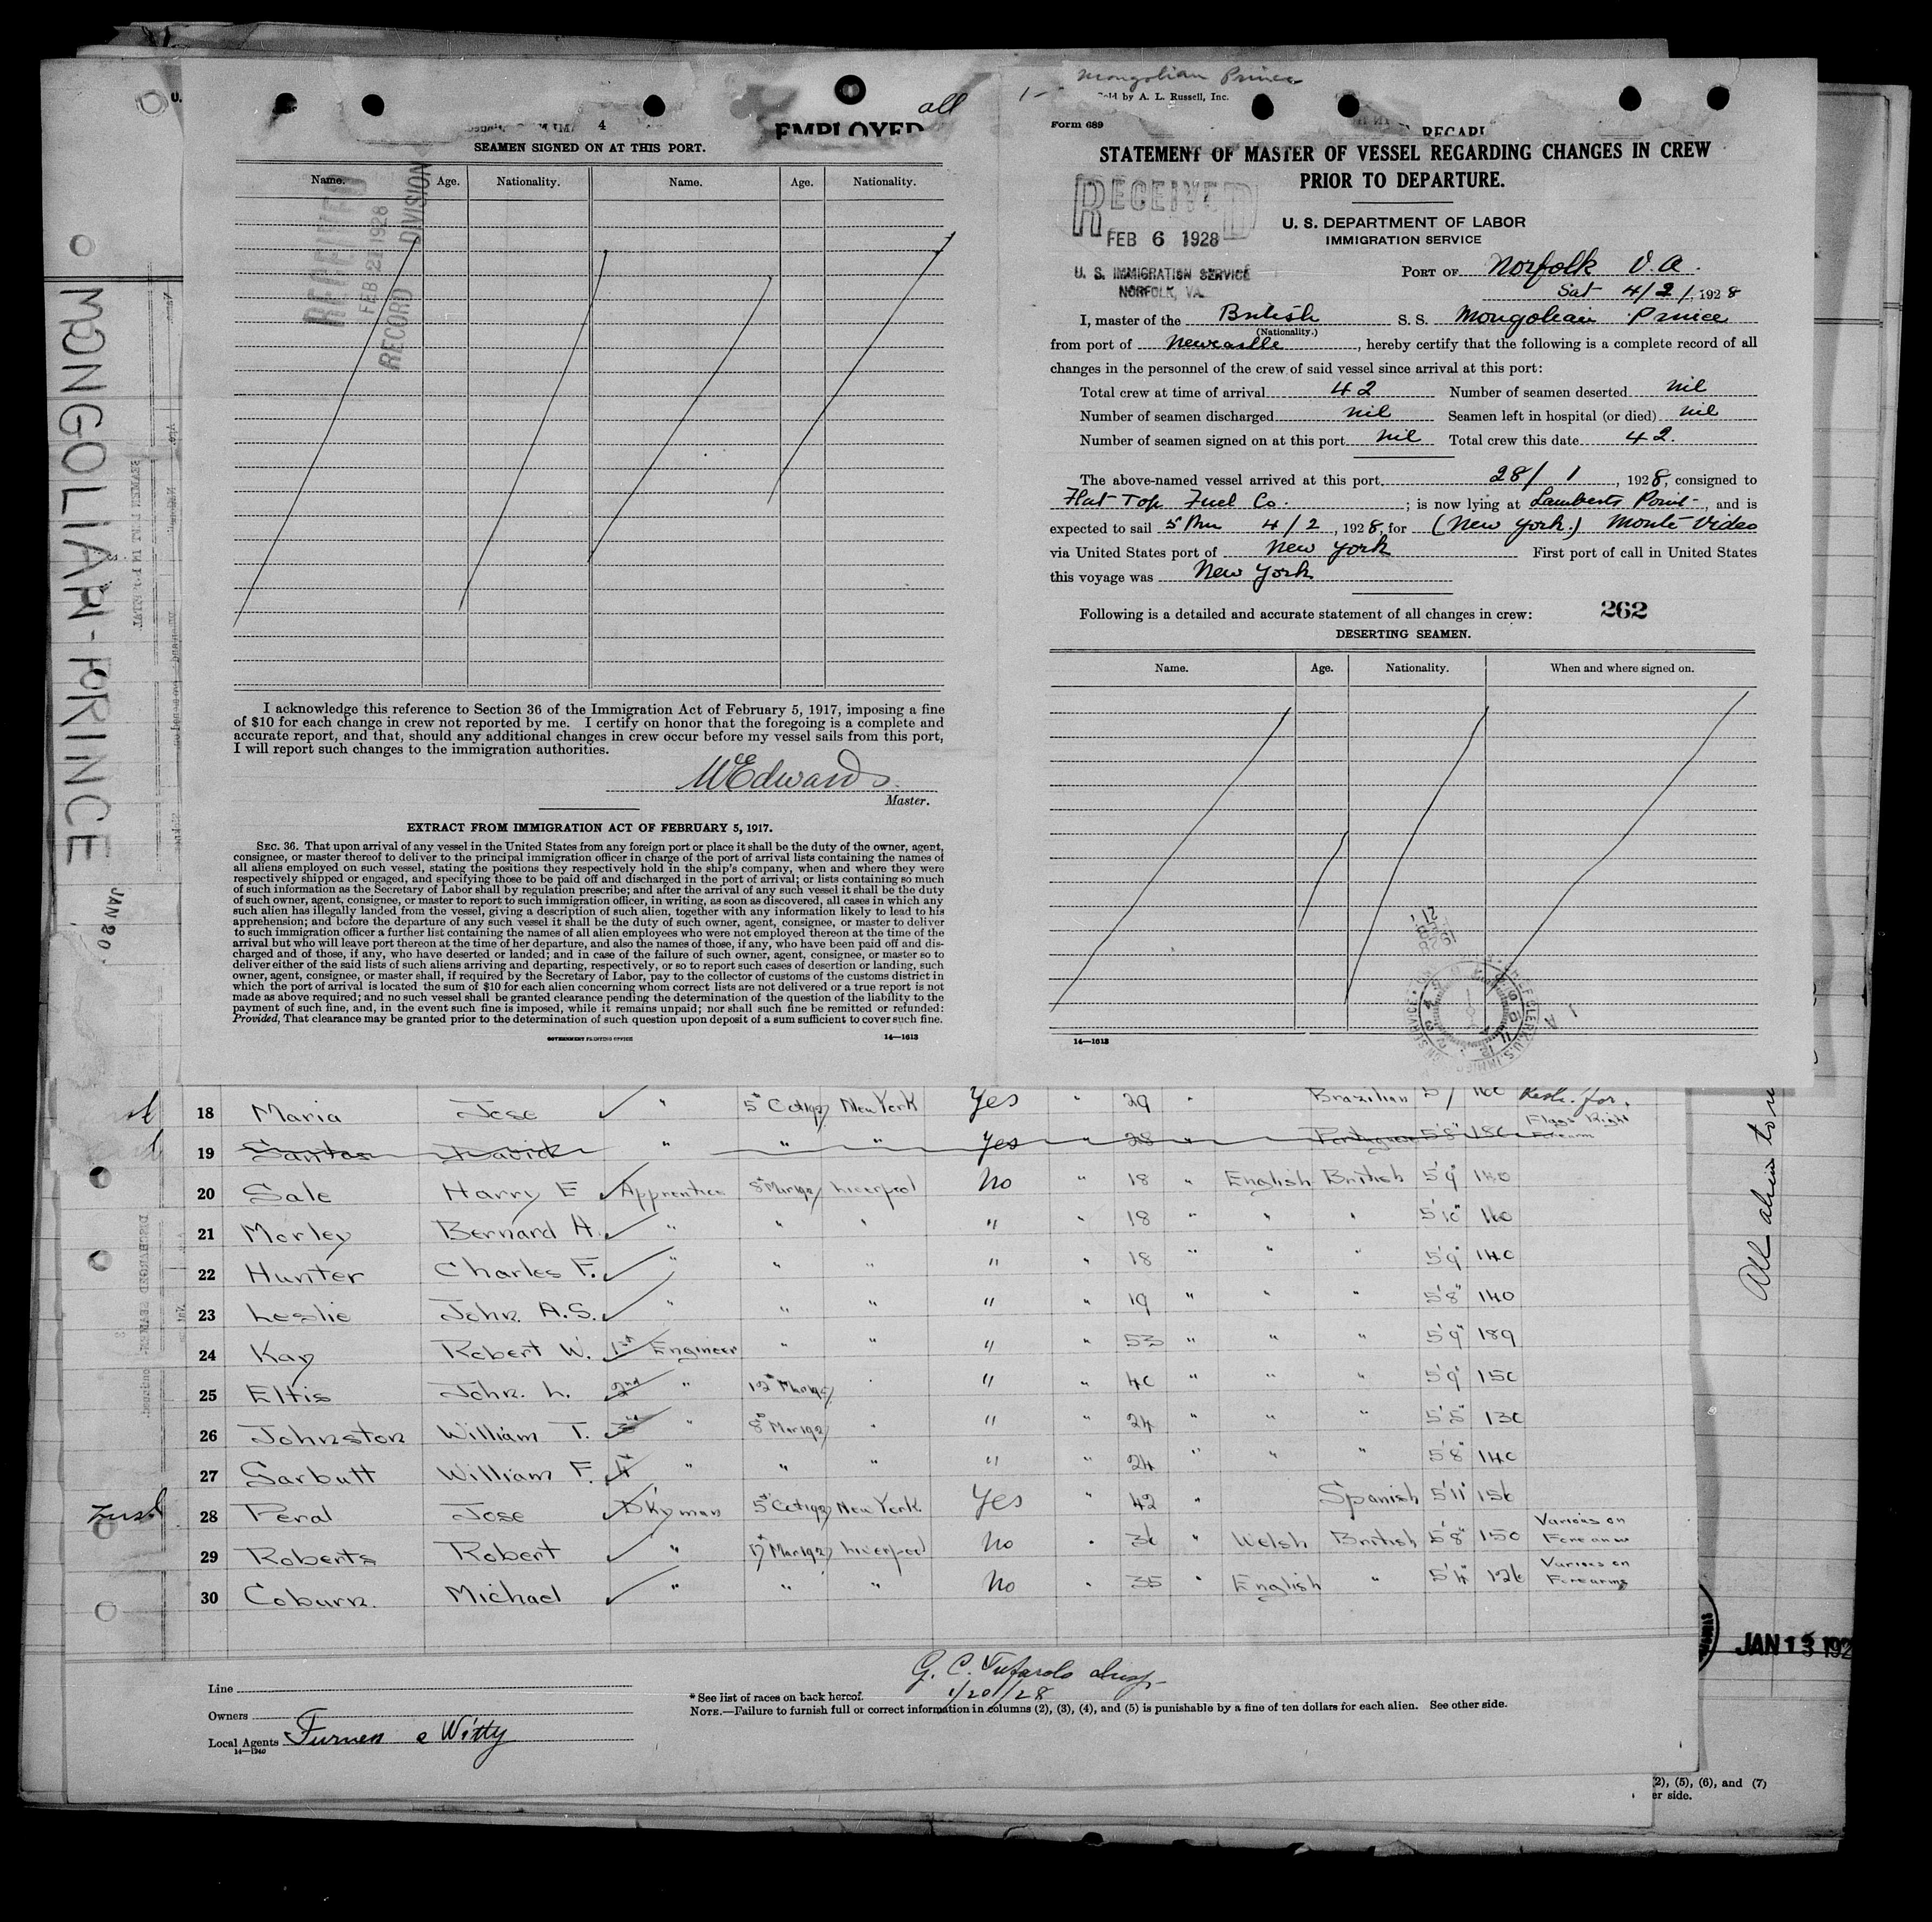 MONGOLIAN-PRINCE
JAN 20
all
4
EMPLOYED
SEAMEN SIGNED ON AT THIS PORT.
Name. Age. Nationality. Name. Age. Nationality.
RECEIVED
FEB 21 1928
RECORD DIVISION
I acknowledge this reference to Section 36 of the Immigration Act of February 5, 1917, imposing a fine
of $10 for each change in crew not reported by me. I certify on honor that the foregoing is a complete and
accurate report, and that, should any additional changes in crew occur before my vessel sails from this port,
I will report such changes to the immigration authorities.
WEdwards
Master.
EXTRACT FROM IMMIGRATION ACT OF FEBRUARY 5, 1917.
SEC. 36. That upon arrival of any vessel in the United States from any foreign port or place it shall be the duty of the owner, agent,
consignee, or master thereof to deliver to the principal immigration officer in charge of the port of arrival lists containing the names of
all aliens employed on such vessel, stating the positions they respectively hold in the ship's company, when and where they were
respectively shipped or engaged, and specifying those to be paid off and discharged in the port of arrival; or lists containing so much
of such information as the Secretary of Labor shall by regulation prescribe; and after the arrival of any such vessel it shall be the duty
of such owner, agent, consignee, or master to report to such immigration officer, in writing, as soon as discovered, all cases in which any
such alien has illegally landed from the vessel, giving a description of such alien, together with any information likely to lead to his
apprehension; and before the departure of any such vessel it shall be the duty of such owner, agent, consignee, or master to deliver
to such immigration officer a further list containing the names of all alien employees who were not employed thereon at the time of the
arrival but who will leave port thereon at the time of her departure, and also the names of those, if any, who have been paid off and dis-
charged and of those, if any, who have deserted or landed; and in case of the failure of such owner, agent, consignee, or master so to
deliver either of the said lists of such aliens arriving and departing, respectively, or so to report such cases of desertion or landing, such
owner, agent, consignee, or master shall, if required by the Secretary of Labor, pay to the collector of customs of the customs district in
which the port of arrival is located the sum of $10 for each alien concerning whom correct lists are not delivered or a true report is not
made as above required; and no such vessel shall be granted clearance pending the determination of the question of the liability to the
payment of such fine, and, in the event such fine is imposed, while it remains unpaid; nor shall such fine be remitted or refunded:
Provided, That clearance may be granted prior to the determination of such question upon deposit of a sum sufficient to cover such fine.
GOVERNMENT PRINTING OFFICE 14—1613
1- Mongolian Prince
Sold by A. L. Russell, Inc.
Form 689
STATEMENT OF MASTER OF VESSEL REGARDING CHANGES IN CREW
PRIOR TO DEPARTURE.
RECEIVED
FEB 6 1928
U. S. IMMIGRATION SERVICE
NORFOLK, VA.
U. S. DEPARTMENT OF LABOR
IMMIGRATION SERVICE
PORT OF Norfolk V.A.
Sat 4/2/, 1928
I, master of the British S. S. Mongolian Prince
(Nationality.)
from port of Newcastle, hereby certify that the following is a complete record of all
changes in the personnel of the crew of said vessel since arrival at this port:
Total crew at time of arrival 42 Number of seamen deserted nil
Number of seamen discharged nil Seamen left in hospital (or died) nil
Number of seamen signed on at this port nil Total crew this date 42.
The above-named vessel arrived at this port 28/1, 1928, consigned to
Flat Top Fuel Co. ; is now lying at Lamberts Point, and is
expected to sail 5 Pm 4/2, 1928, for (New York.) Monte Video
via United States port of New York First port of call in United States
this voyage was New York
Following is a detailed and accurate statement of all changes in crew: 262
DESERTING SEAMEN.
Name. Age. Nationality. When and where signed on.
14—1613
18 Maria Jose " 5th Oct 1927 New York Yes " 29 " Brazilian 5/ 160
19 Santos David " " " Yes " 28 " Portuguese 5'8" 180 Flags Right Forearm
20 Sale Harry E Apprentice 8th Mar 1927 Liverpool No " 18 " English British 5'9" 140
21 Morley Bernard H. " " " " " 18 " " " 5'10" 140
22 Hunter Charles F. " " " " " 18 " " " 5'9" 140
23 Leslie John A.S. " " " " " 19 " " " 5'8" 140
24 Kay Robert W. 1st Engineer " " " " 53 " " " 5'9" 189
25 Eltis John. L. 2nd " 12th Mar 1927 " " " 40 " " " 5'9" 150
26 Johnston William T. 3rd " 8th Mar 1927 " " " 24 " " " 5'8" 130
27 Garbutt William F. 4th " " " " " 24 " " " 5'8" 140
28 Peral Jose Dkyman 5th Oct 1927 New York. Yes " 42 " Spanish 5'11" 156
29 Roberts Robert " Mar 1927 Liverpool No " 36 " Welsh British 5'8" 150 Various on Forearms
30 Coburn. Michael " " " No " 35 " English " 5'4" 126 Various on Forearms
All aliens to
JAN 13 192
G. C. Tufarolo Insp.
1/20/28
Line
* See list of races on back hereof.
Owners
NOTE.—Failure to furnish full or correct information in columns (2), (3), (4), and (5) is punishable by a fine of ten dollars for each alien. See other side.
Local Agents Furness & Withy
14—1240
(2), (5), (6), and (7)
er side.